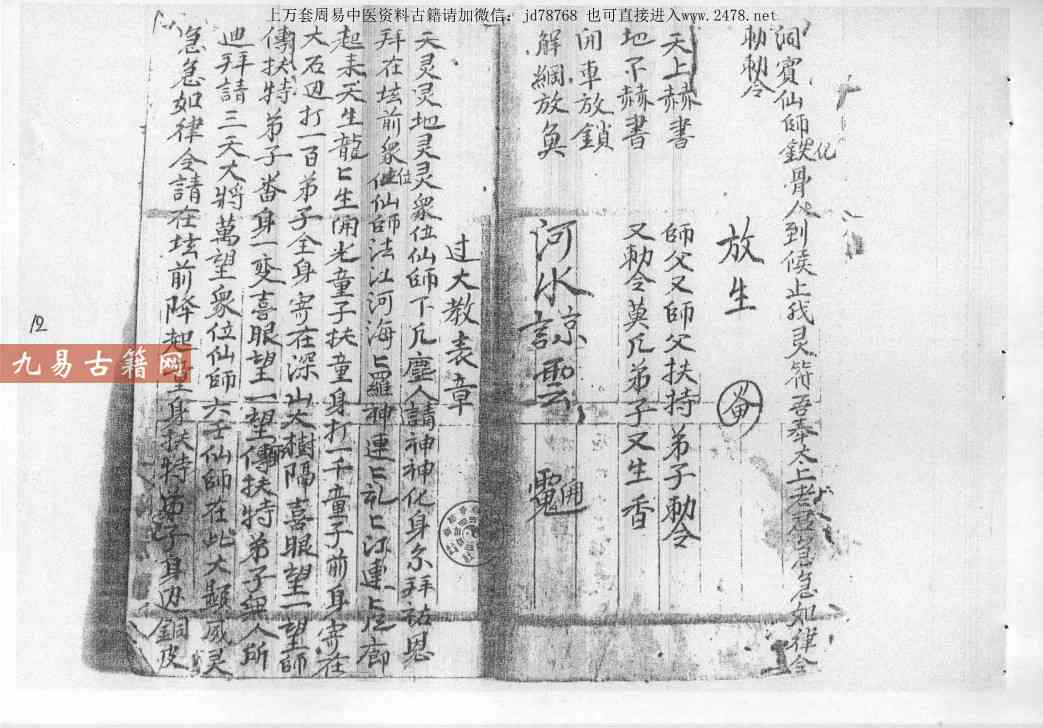 上万套周易中医资料古籍请加微信：jd78768 也可直接进入www.2478.net
洞賓仙師鉄骨化人到候止我灵符吾奉太上老君急急如律令
勅勅令
放生
天上赫書 師父又師父扶持弟子勅令
地下赫書 又勅令莫兀弟子又生香
開車放鎖
解網放魚
河水諒雲
過大教表章
天灵灵地灵灵衆位仙師下凡塵人請神神化身尔拜
拜在坛前衆位仙師法江河海
起来天生龍匕生開光童子扶童身打一千童子前身寄在
大石边打一百弟子全身寄在深山大樹隔喜眼望一望師
傳扶特弟子番身一变喜眼望一望傳扶特弟子衆人所
迪拜請三天大將萬望衆位仙師六壬仙師在此大顯威灵
急急如律令請在坛前降起童身扶特弟子身边銅皮
12
九易古籍网